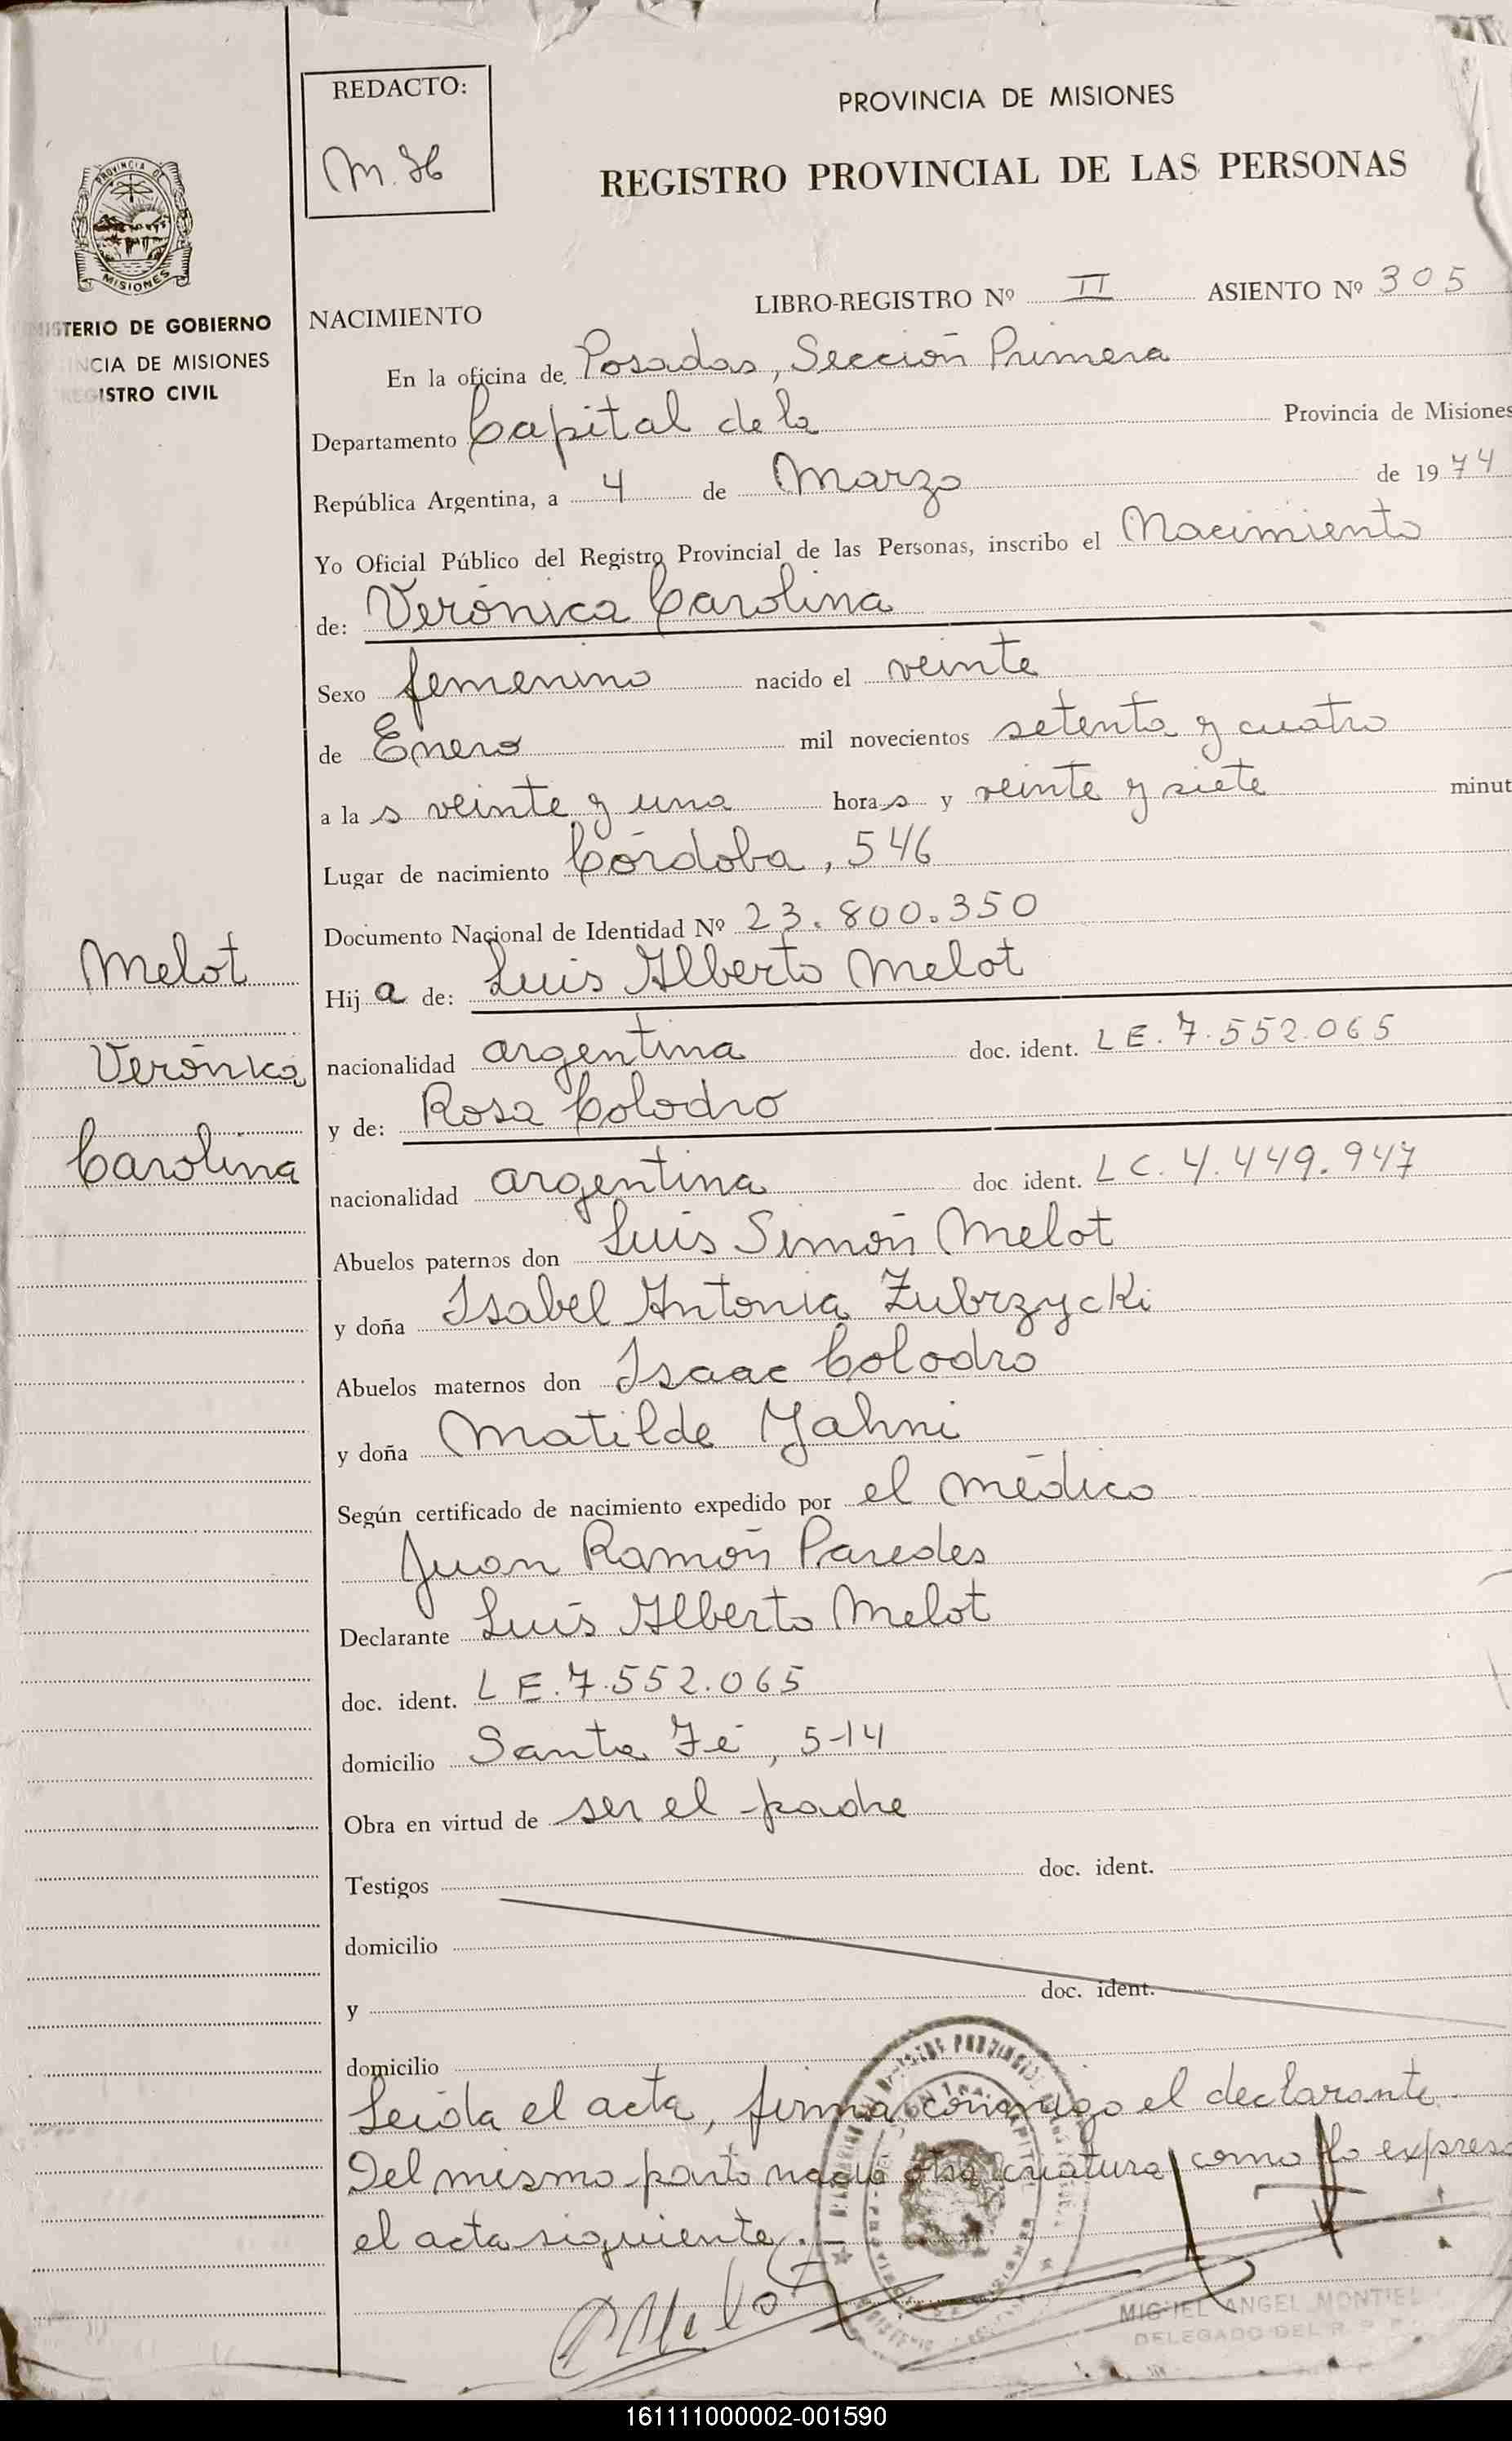 REDACTO:
PROVINCIA DE MISIONES
REGISTRO PROVINCIAL DE LAS PERSONAS
PROVINCIA DE
MISIONES
DE GOBIERNO
DE MISIONES
CIVIL
NACIMIENTO
LIBRO-REGISTRO Nº II ASIENTO Nº 305
En la oficina de Posadas, Sección Primera
Departamento Capital de la Provincia de Misiones
República Argentina, a 4 de Marzo de 1974
Yo Oficial Público del Registro Provincial de las Personas, inscribo el Nacimiento
de: Verónica Carolina
Sexo femenino nacido el veinte
de Enero mil novecientos setenta y cuatro
a la s veinte y una hora s y veinte y siete minut
Lugar de nacimiento Córdoba, 546
Documento Nacional de Identidad Nº 23.800.350
Melot
Hij a de: Luis Alberto Melot
Verónica
nacionalidad argentina doc. ident. LE. 7.552.065
y de: Rosa Colodro
Carolina
nacionalidad argentina doc ident. LC. 4.449.947
Abuelos paternos don Luis Simón Melot
y doña Isabel Antonia Zubrzycki
Abuelos maternos don Isaac Colodro
y doña Matilde Yahni
Según certificado de nacimiento expedido por el médico
Juan Ramón Paredes
Declarante Luis Alberto Melot
doc. ident. LE. 7.552.065
domicilio Santa Fé, 514
Obra en virtud de ser el padre
Testigos doc. ident.
domicilio
y doc. ident.
domicilio
Leída el acta, firma conmigo el declarante.
Del mismo parto nació otra criatura, como lo expresa
el acta siguiente.
MIGUEL ANGEL MONTIEL
DELEGADO DEL R. P. P.
161111000002-001590